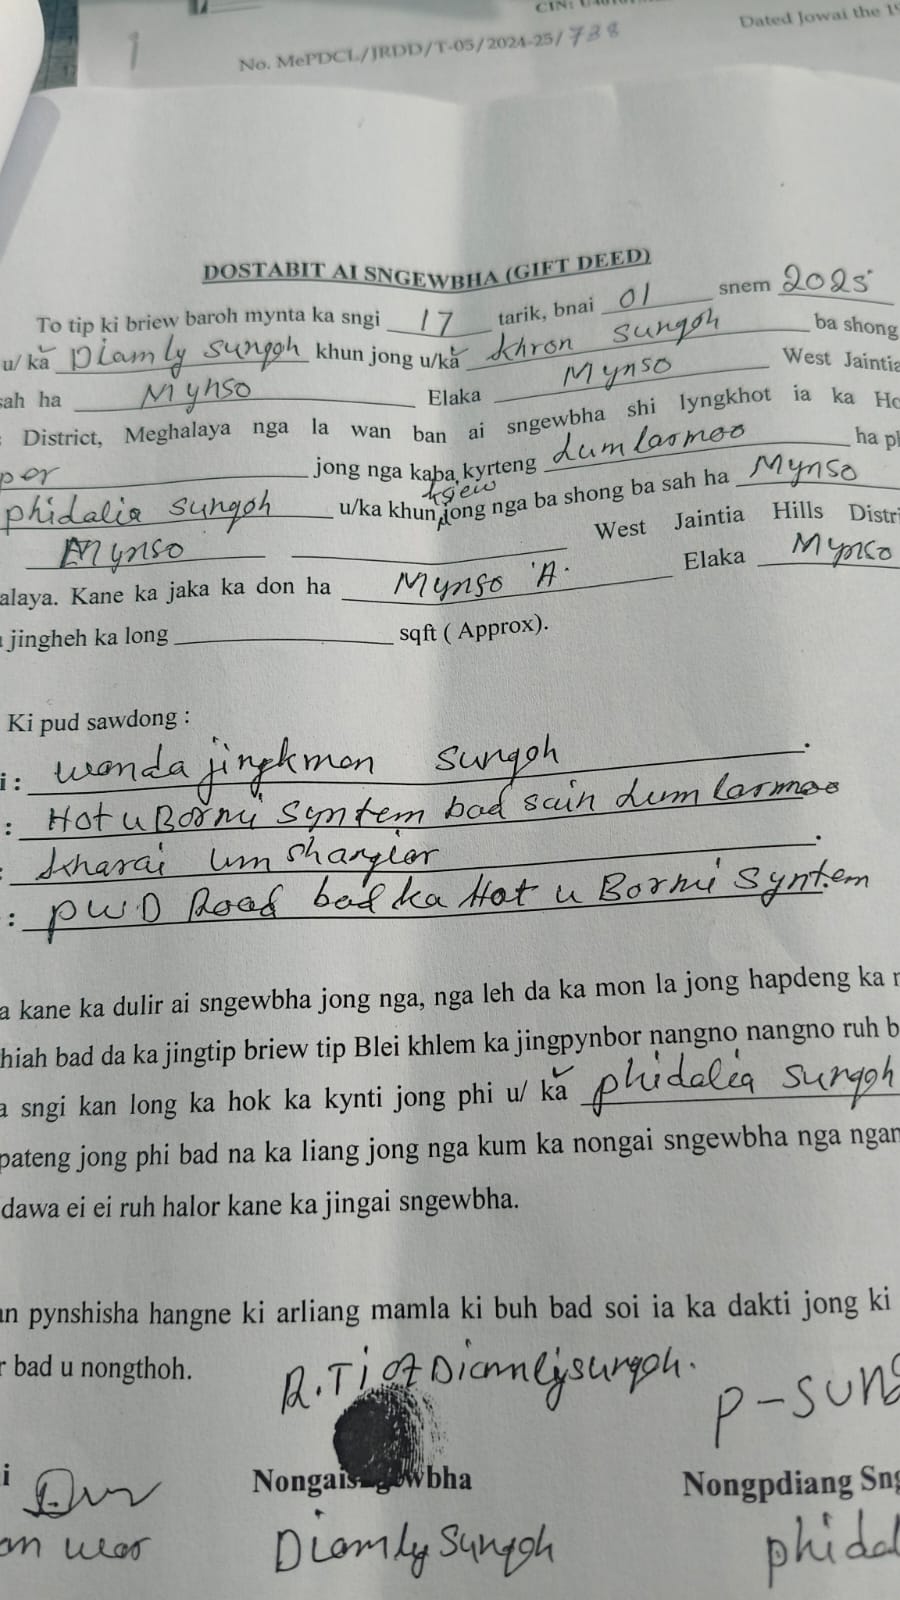 CIN:
Dated Jowai the 1
1
No. MePDCL/JRDD/T-05/2024-25/738
DOSTABIT AI SNGEWBHA (GIFT DEED)
To tip ki briew baroh mynta ka sngi 17 tarik, bnai 01 snem 2025
u/ ka Diamly sungoh khun jong u/ka Khron sungoh ba shong
sah ha Mynso Elaka Mynso West Jaintia
District, Meghalaya nga la wan ban ai sngewbha shi lyngkhot ia ka
per jong nga kaba kyrteng Lumlasmoo ha
ksiew
phidalia sungoh u/ka khun jong nga ba shong ba sah ha Mynso
Mynso West Jaintia Hills Distri
alaya. Kane ka jaka ka don ha Mynso 'A' Elaka Mynso
jingheh ka long sqft ( Approx).
Ki pud sawdong :
i : Wandajingkmen Sungoh
: Hot u Bormi Syntem bad sain Lumlasmoo
: kharai um shangior
: PWD Road bad ka Hot u Bormi Syntem
a kane ka dulir ai sngewbha jong nga, nga leh da ka mon la jong hapdeng ka
hiah bad da ka jingtip briew tip Blei khlem ka jingpynbor nangno nangno ruh b
a sngi kan long ka hok ka kynti jong phi u/ ka phidalia sungoh
pateng jong phi bad na ka liang jong nga kum ka nongai sngewbha nga ngan
dawa ei ei ruh halor kane ka jingai sngewbha.
an pynshisha hangne ki arliang mamla ki buh bad soi ia ka dakti jong ki
r bad u nongthoh.
R.TI of Diamly sungoh.
P-SUN
i
Nongais wbha
Nongpdiang Sng
an war
Diamly Sungoh
phidal